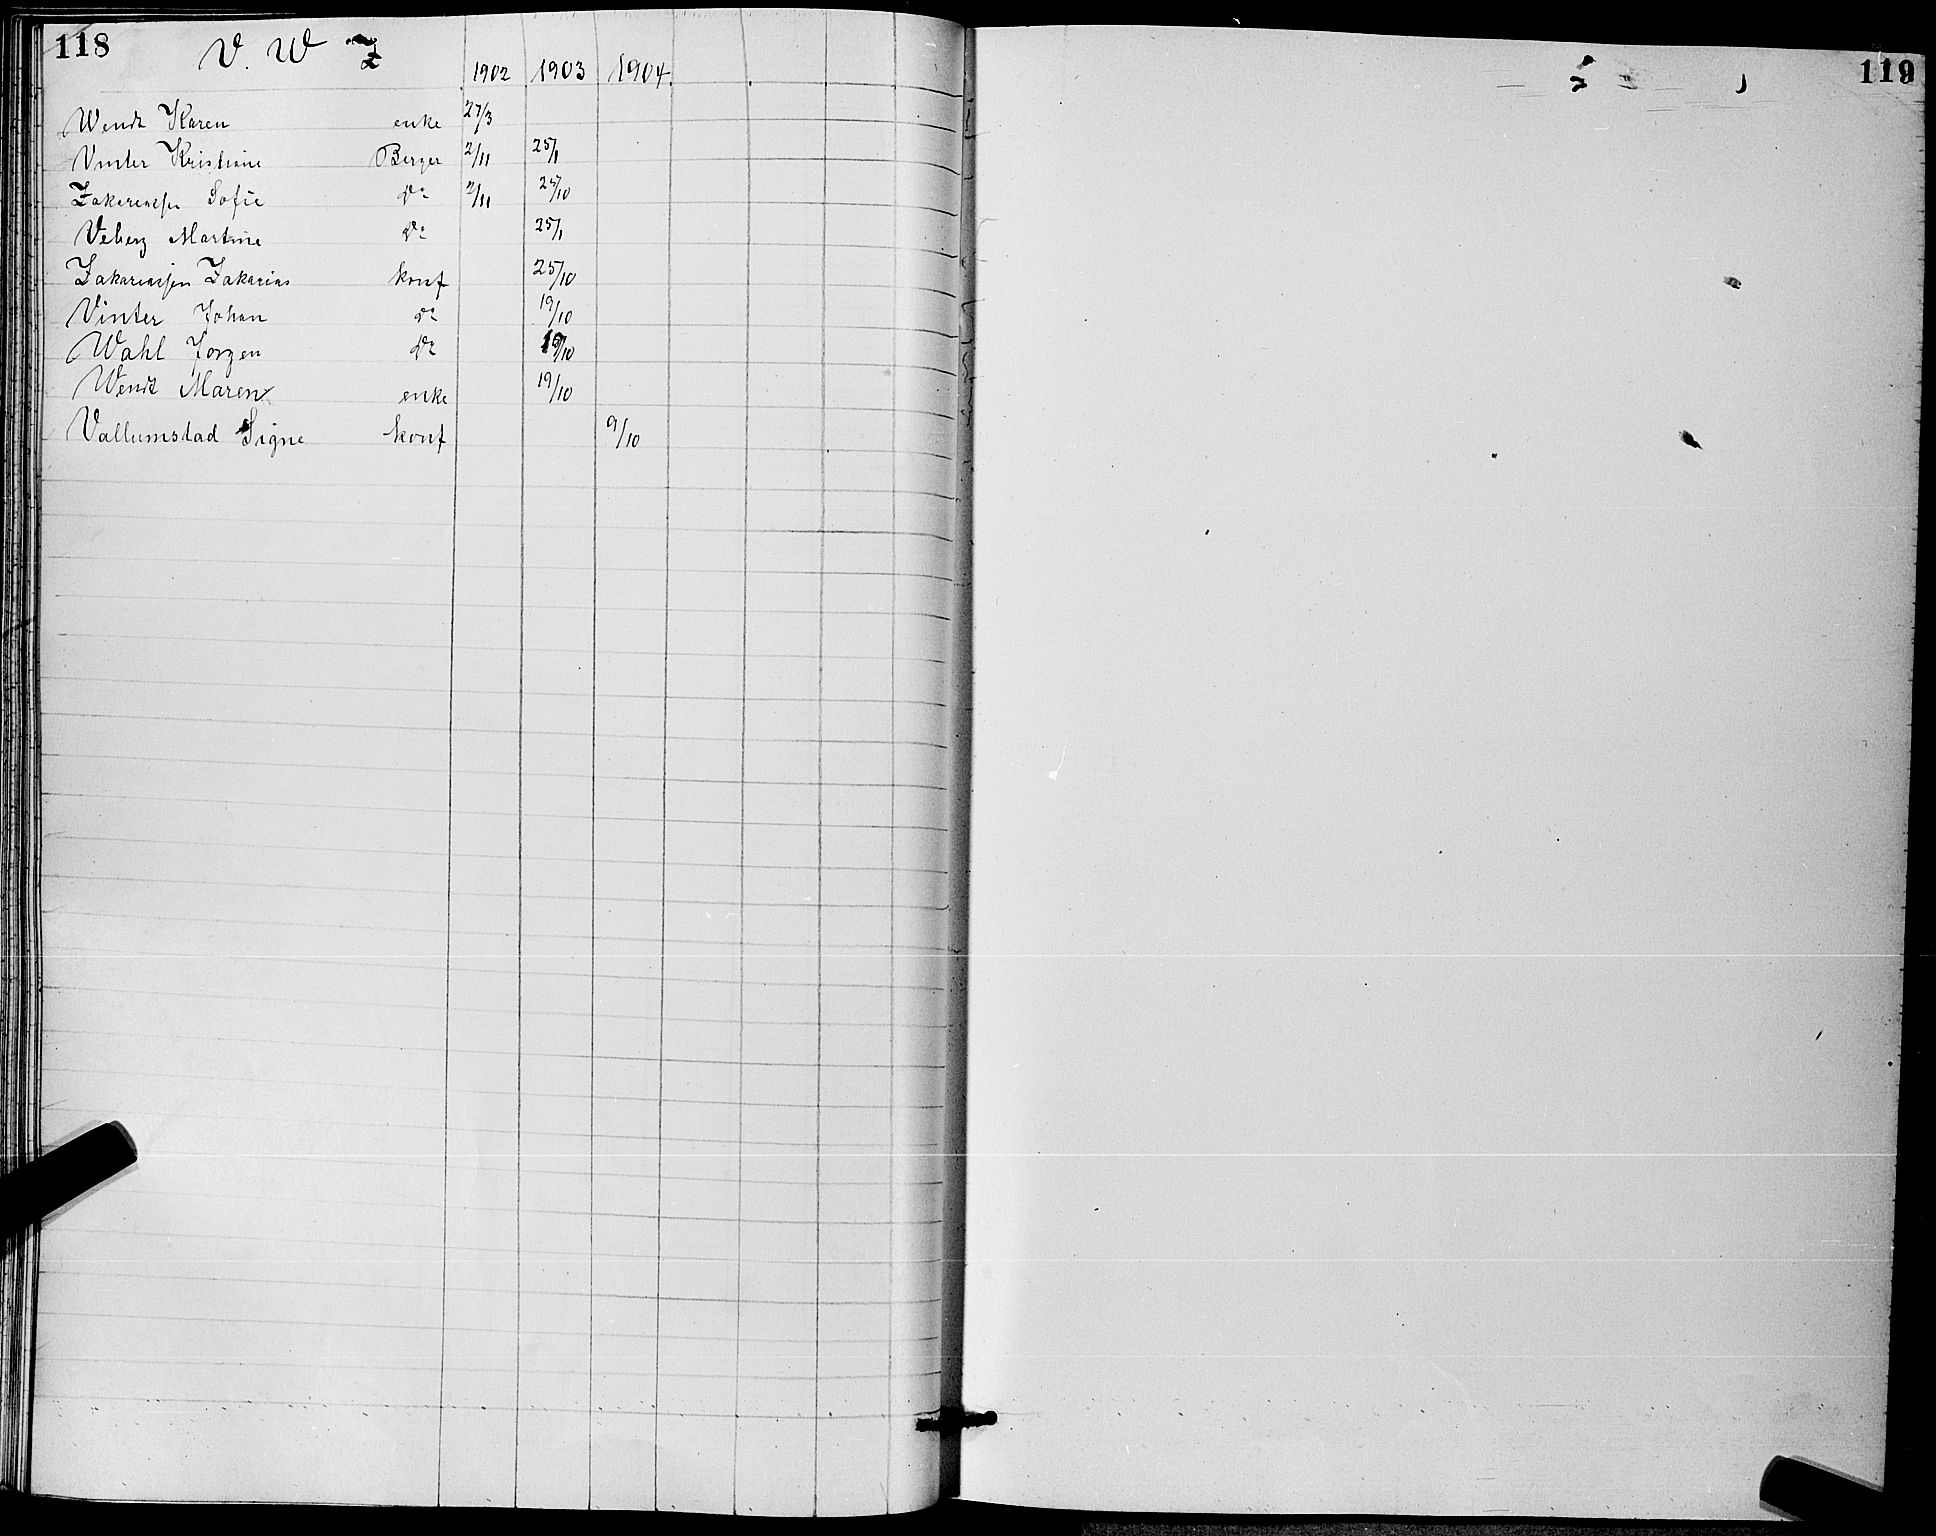 118
V. W Z
1902 1903 1904
Wendt Karen enke 27/3
Vinter Kristiane Berger 2/11 25/1
Zakariassen Sofie do 2/11 25/10
Veberg Martine do 25/1
Zakariassen Zakarias konf 25/10
Vinter Johan do 19/10
Wahl Jorgen do /10
Wendt Maren enke 19/10
Vallumstad Signe konf 9/10
119